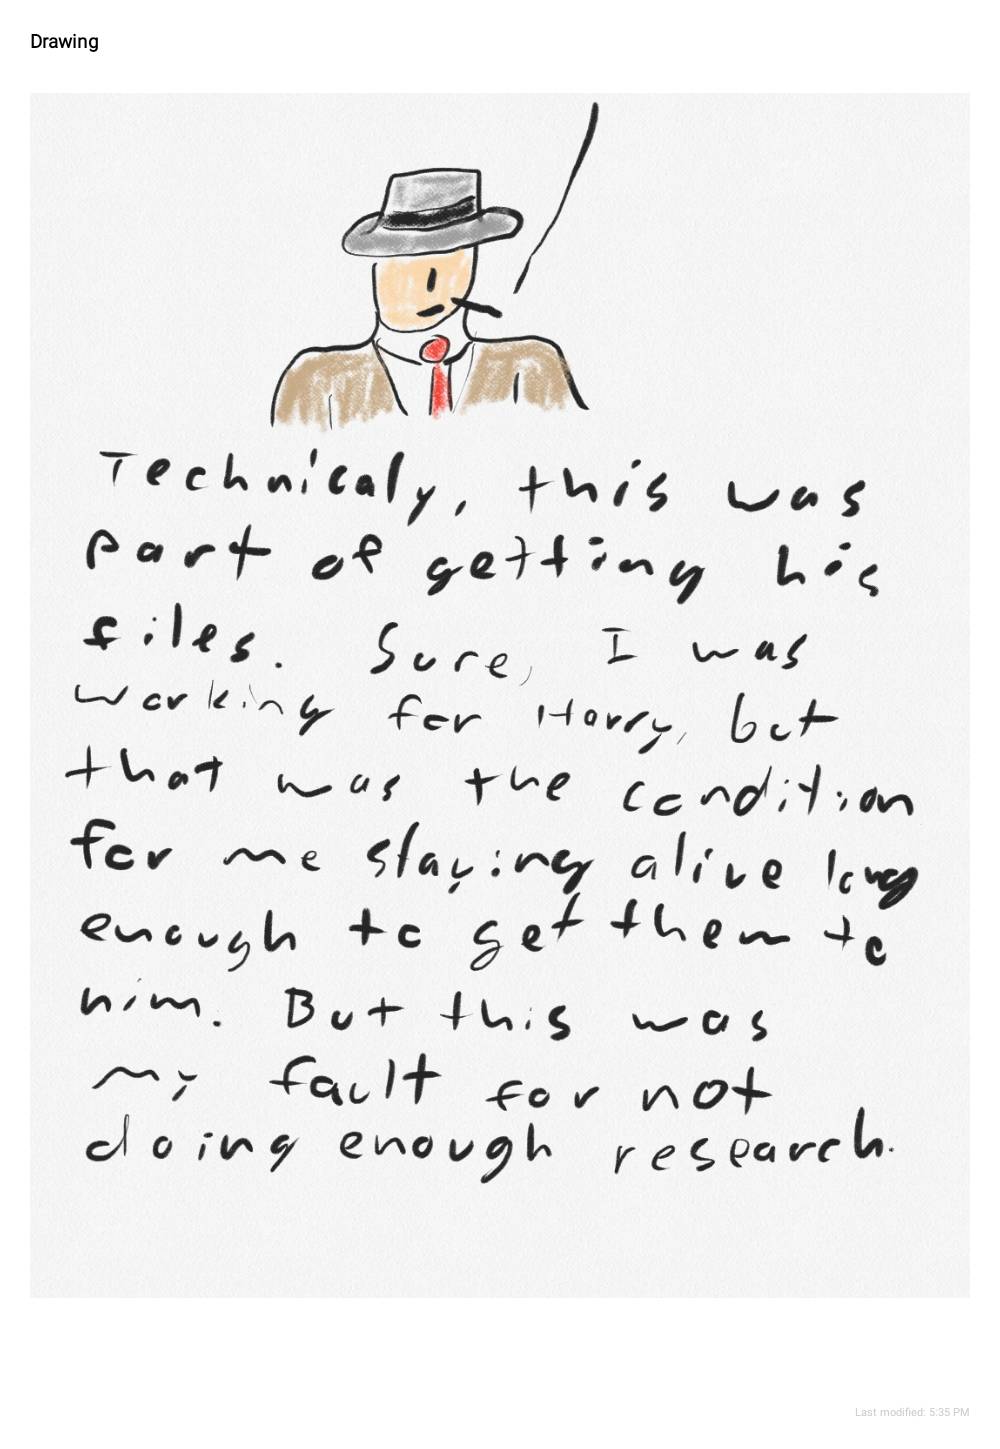 Drawing
Technicaly, this was
part of getting his
files. Sure, I was
working for Harry, but
that was the condition
for me staying alive long
enough to get them to
him. But this was
my fault for not
doing enough research.
Last modified: 5:35 PM